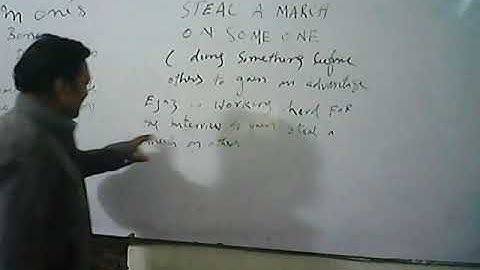 monis
Bone
STEAL A MARCH
ON SOME ONE
( doing something before
others to gain an advantage
Ejaz is working hard FOR
interview to gain steal a
march on others